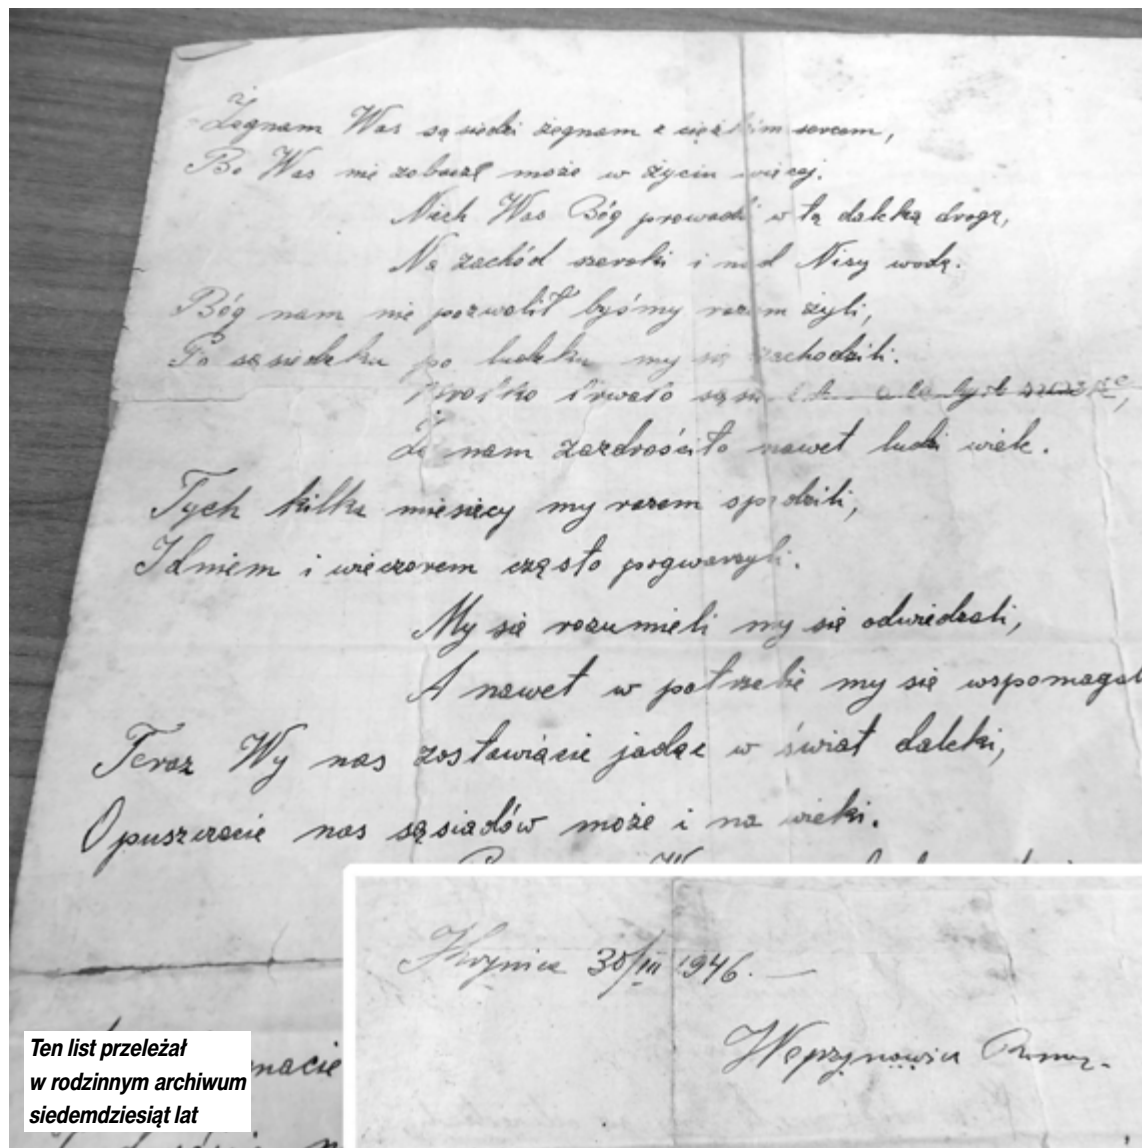 Żegnam Was są siedzi żegnam z ciężkim sercem,
Bo Was nie zobaczę może w życiu więcej.
Niech Was Bóg prowadzi w tą daleką drogę,
Na zachód szeroki i nad Nisy wodę.
Bóg nam nie pozwolił byśmy razem żyli,
Po są siedzku po ludzku my się zachodzili.
Krótko trwało
Że nam zazdrościło nawet ludzi wiele.
Tych kilka miesięcy my razem spędzili,
I dniem i wieczorem często pogwarzyli.
My się rozumieli my się odwiedzali,
A nawet w potrzebie my się wspomagal
Teraz Wy nas zostawiacie jadąc w świat daleki,
Opuszczacie nas sąsiadów może i na wieki.
Krynica 30/III 1946. —
Ten list przeleżał
w rodzinnym archiwum
siedemdziesiąt lat